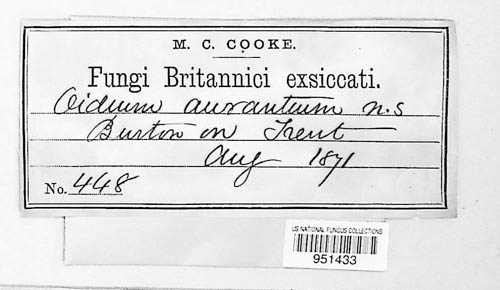 M. C. COOKE.
Fungi Britannici exsiccati.
Oidium aurantium n.s
Burton on Trent
Aug 1871
No. 448
US NATIONAL FUNGUS COLLECTIONS
951433